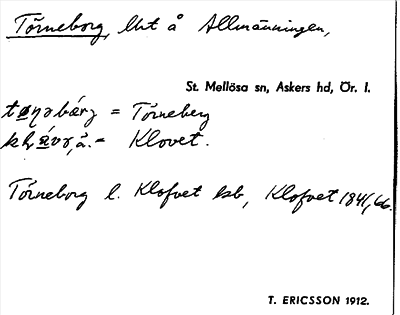 Törneborg, lht å Allmänningen,
St. Mellösa sn, Askers hd, Ör. l.
= Törneberg
= Klovet.
Törneborg l. Klofvet bsb, Klofvet 1841, 66.
T. ERICSSON 1912.